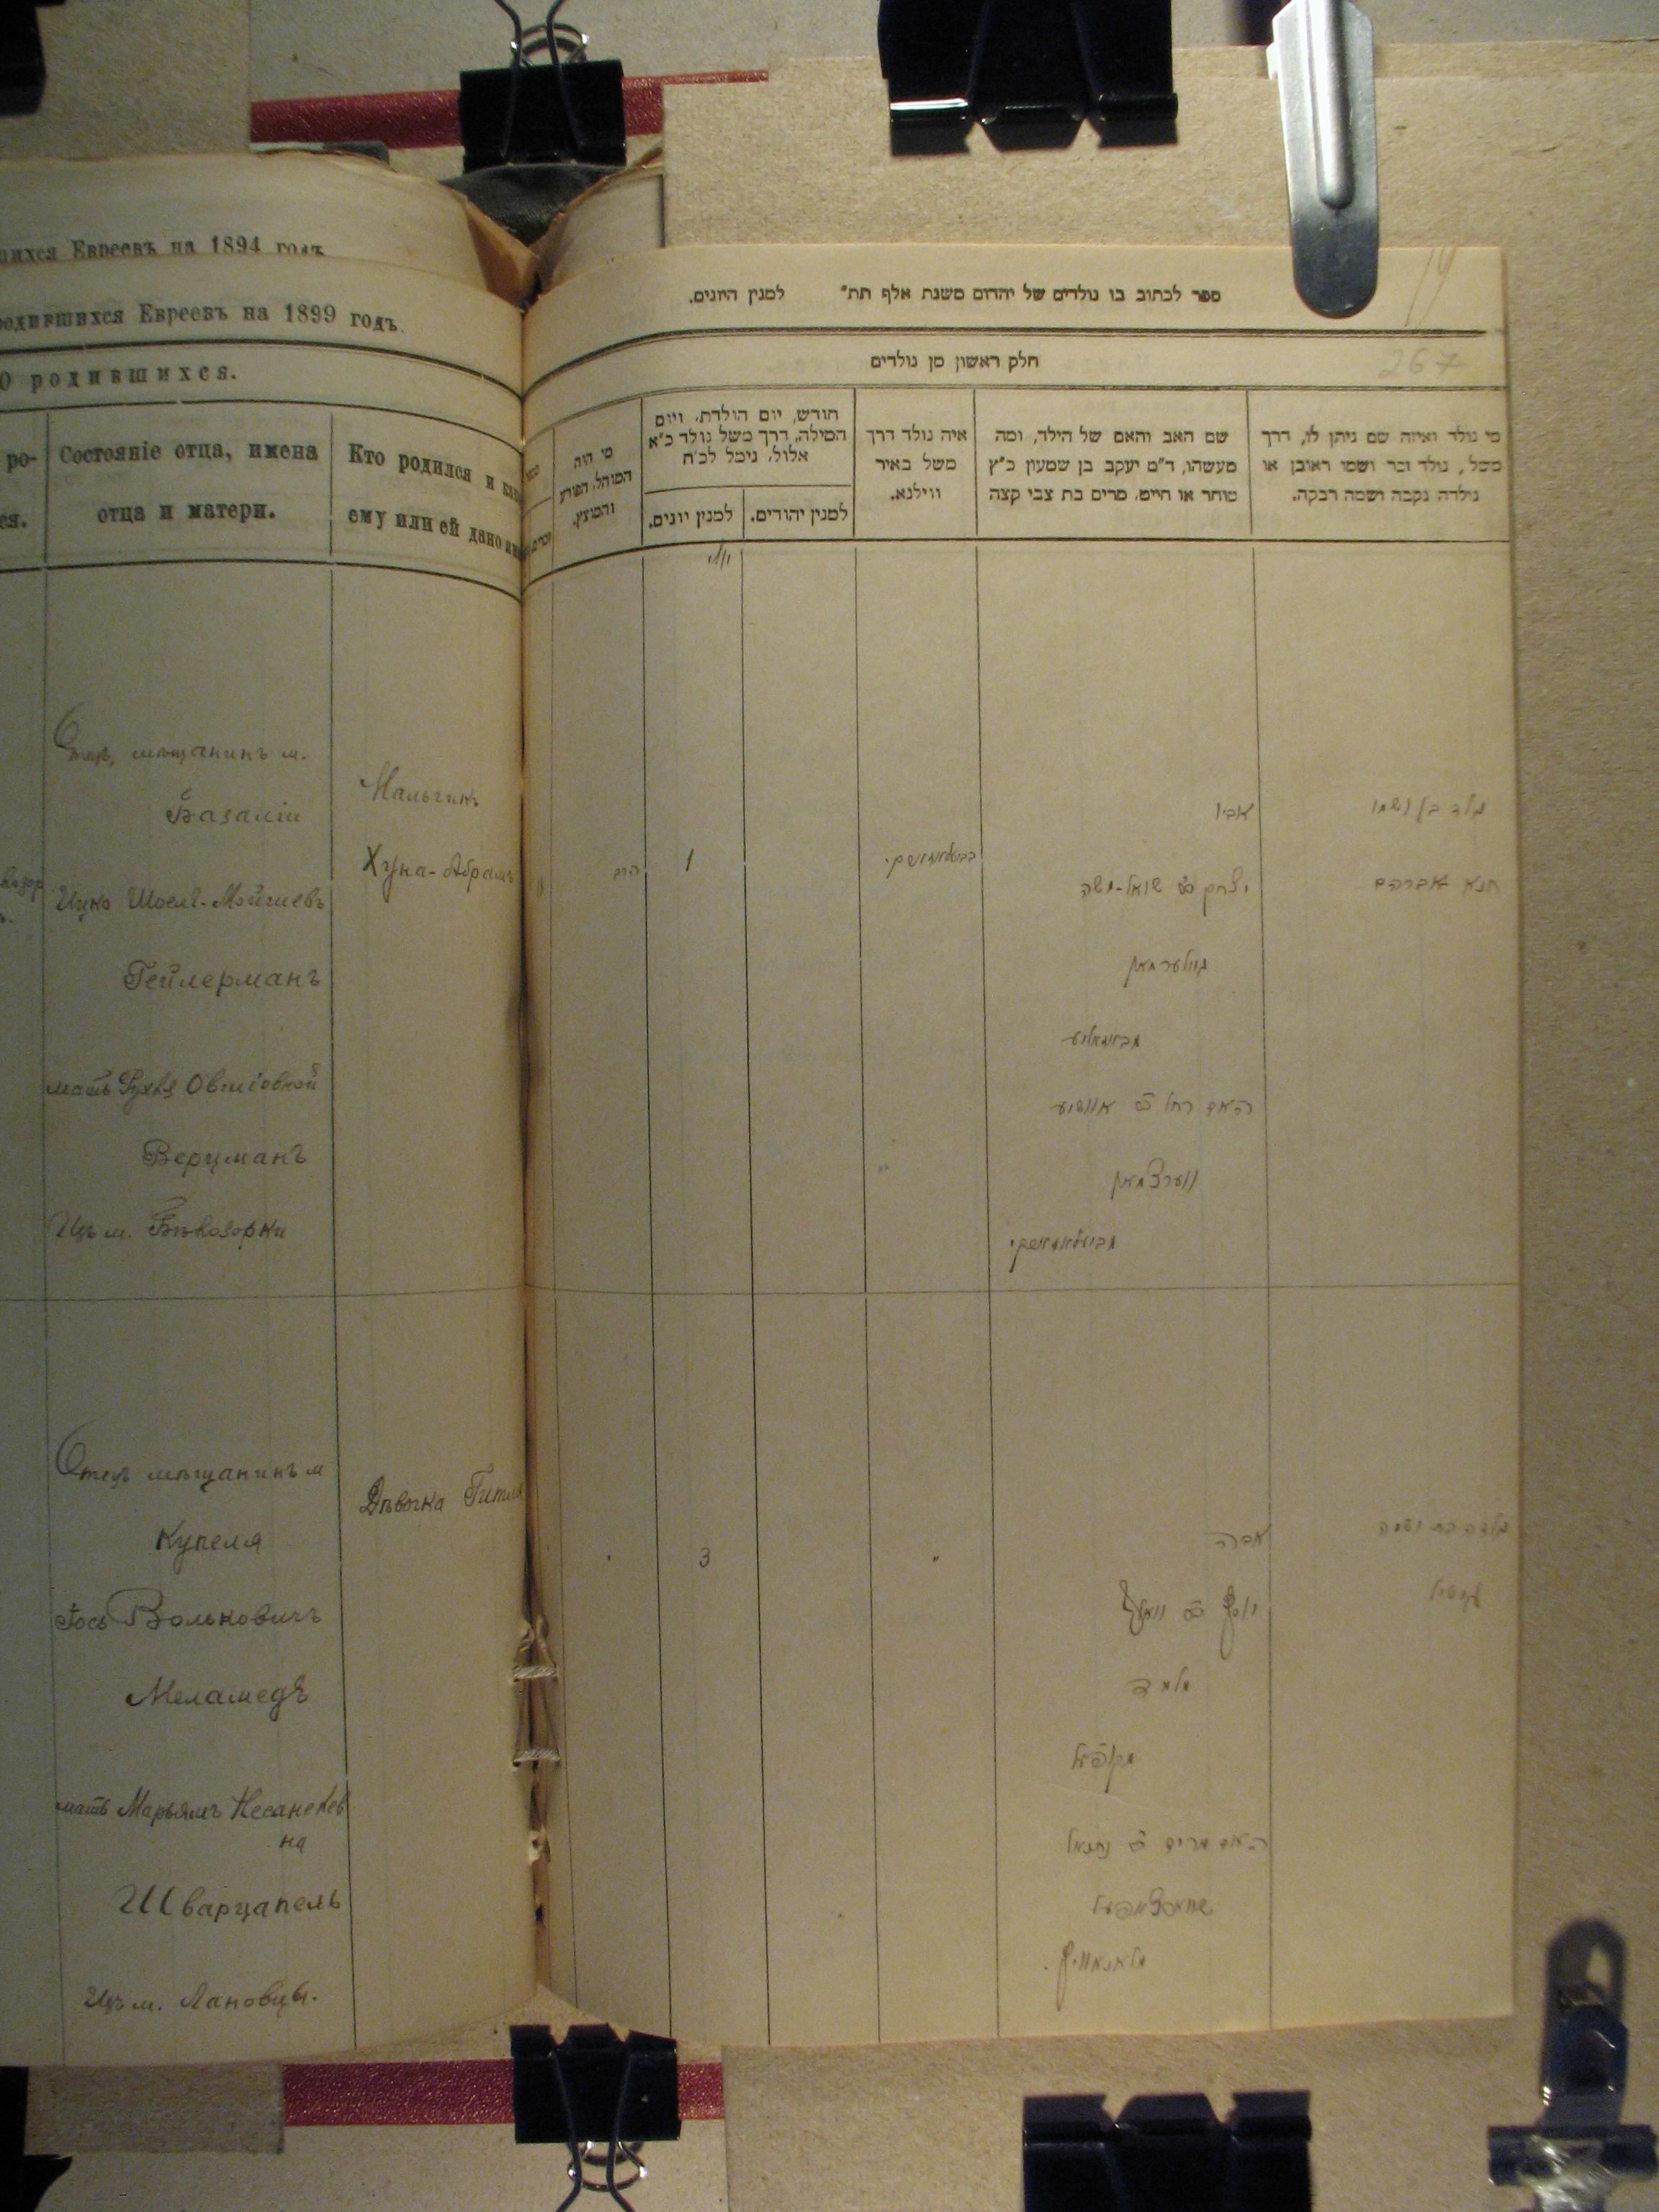 шихся Евреевъ на 1894 годъ
родившихся Евреевъ на 1899 годъ.
О родившихся.
ро-
ся.
Состояніе отца, имена
отца и матери.
Кто родился и как
ему или ей дано им
Отецъ мѣщанинъ м.
Базаліи
Ицко Шоель-Мойшевъ
Гейлерманъ
мать Рухля Овшіовной
Верцманъ
Изъ м. Бѣлозорки
Мальчикъ
Хуна-Абрамъ
Отецъ мѣщанинъ м
Купеля
Іось Вольковичъ
Меламедъ
мать Марьямъ Несанелев
на
Шварцапель
Изъ м. Лановцы.
Дѣвочка Гитля
ספר לכתוב בו נולדים של יהדום משנת אלף תת״ למנין היונים.
267
חלק ראשון מן נולדים
מי נולד ואיזה שם ניתן לו, דרך
משל, נולד זכר ושמו ראובן או
נולדה נקבה ושמה רבקה.
שם האב והאם של הילד, ומה
מעשהו, ד״מ יעקב בן שמעון כ״ץ
סוחר או חייט, מרים בת צבי קצה
איה נולד דרך
משל באיר
ווילנא.
חודש, יום הולדת, ויום
המילה, דרך משל נולד כ״א
אלול, נימל לכ״ח
למנין יהודים.
למנין יונים.
מי היה
המוהל, הפורע
והמוצץ.
נולד בן ושמו
חנא אברהם
אביו
יצחק ב״ר שואל-משה
גיילערמאן
מבאזאליע
האם רחל ב״ר אוושיע
ווערצמאן
1
נולדה בת ושמה
אביה
יוסף ב״ר וואלף
מלמד
מקופעל
האם מרים ב״ר נתנאל
שווארצאפעל
מלאנאוויץ.
3